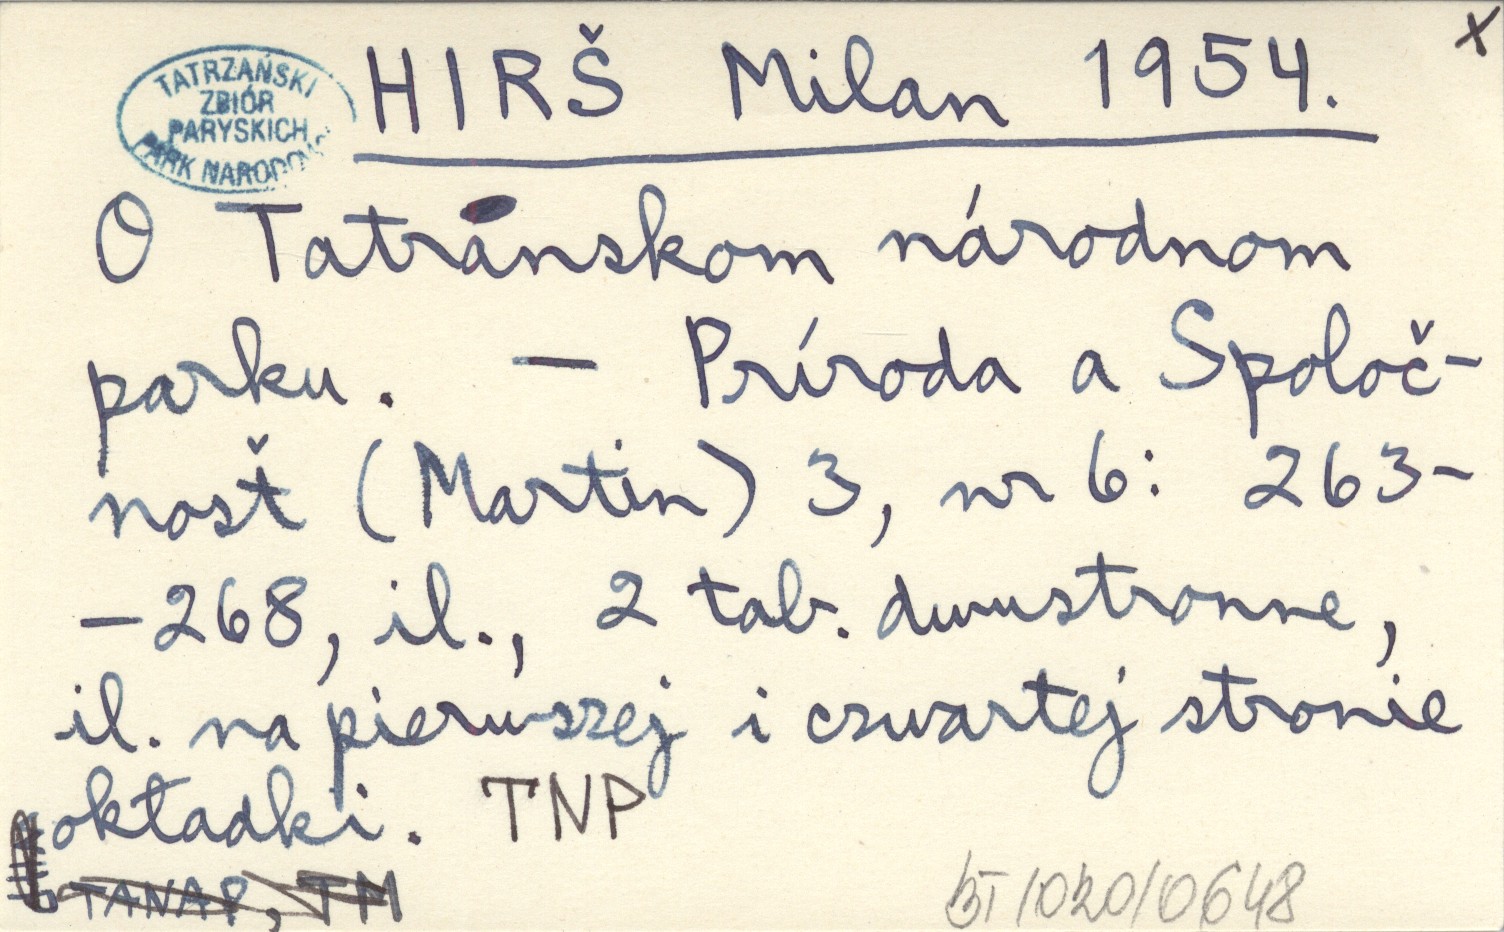 x
TATRZAŃSKI
ZBIÓR
PARYSKICH
PARK NARODOW
HIRŠ Milan 1954.
O Tatránskom národnom
parku. — Príroda a Spoloč-
nosť (Martin) 3, nr 6: 263-
-268, il., 2 tab. dwustronne,
il. na pierwszej i czwartej stronie
okładki. TNP
TANAP, TM
BT/020/0648